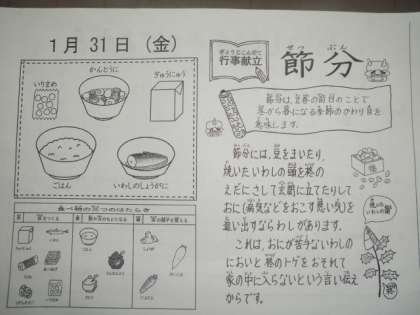 1月 31日 (金)
かんとうに
いりまめ
ぎゅうにゅう
ごはん
いわしのしょうがに
食べ物の三つのはたらき
ぎょうじこんだて
行事献立
せつ ぶん
節分
節分は、立春の前日のことで
冬から春になる季節のかわり目を
意味します。
節分には、豆をまいたり、
焼いたいわしの頭を柊の
えだにさして玄関に立てたりして
おに(病気などをおこす悪い気)を
追い出すならわしがあります。
これは、おにが苦手ないわしの
においと柊のトゲをおそれて
家の中に入らないという言い伝え
からです。